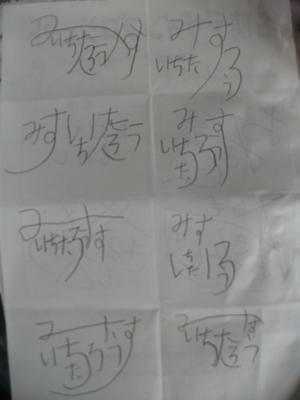 みす
いちたろう
みす
いちたろう
みすいちたろう
みす
いちたろう
みす
いちたろう
みす
いちたろう
みす
いちたろう
みす
いちたろう